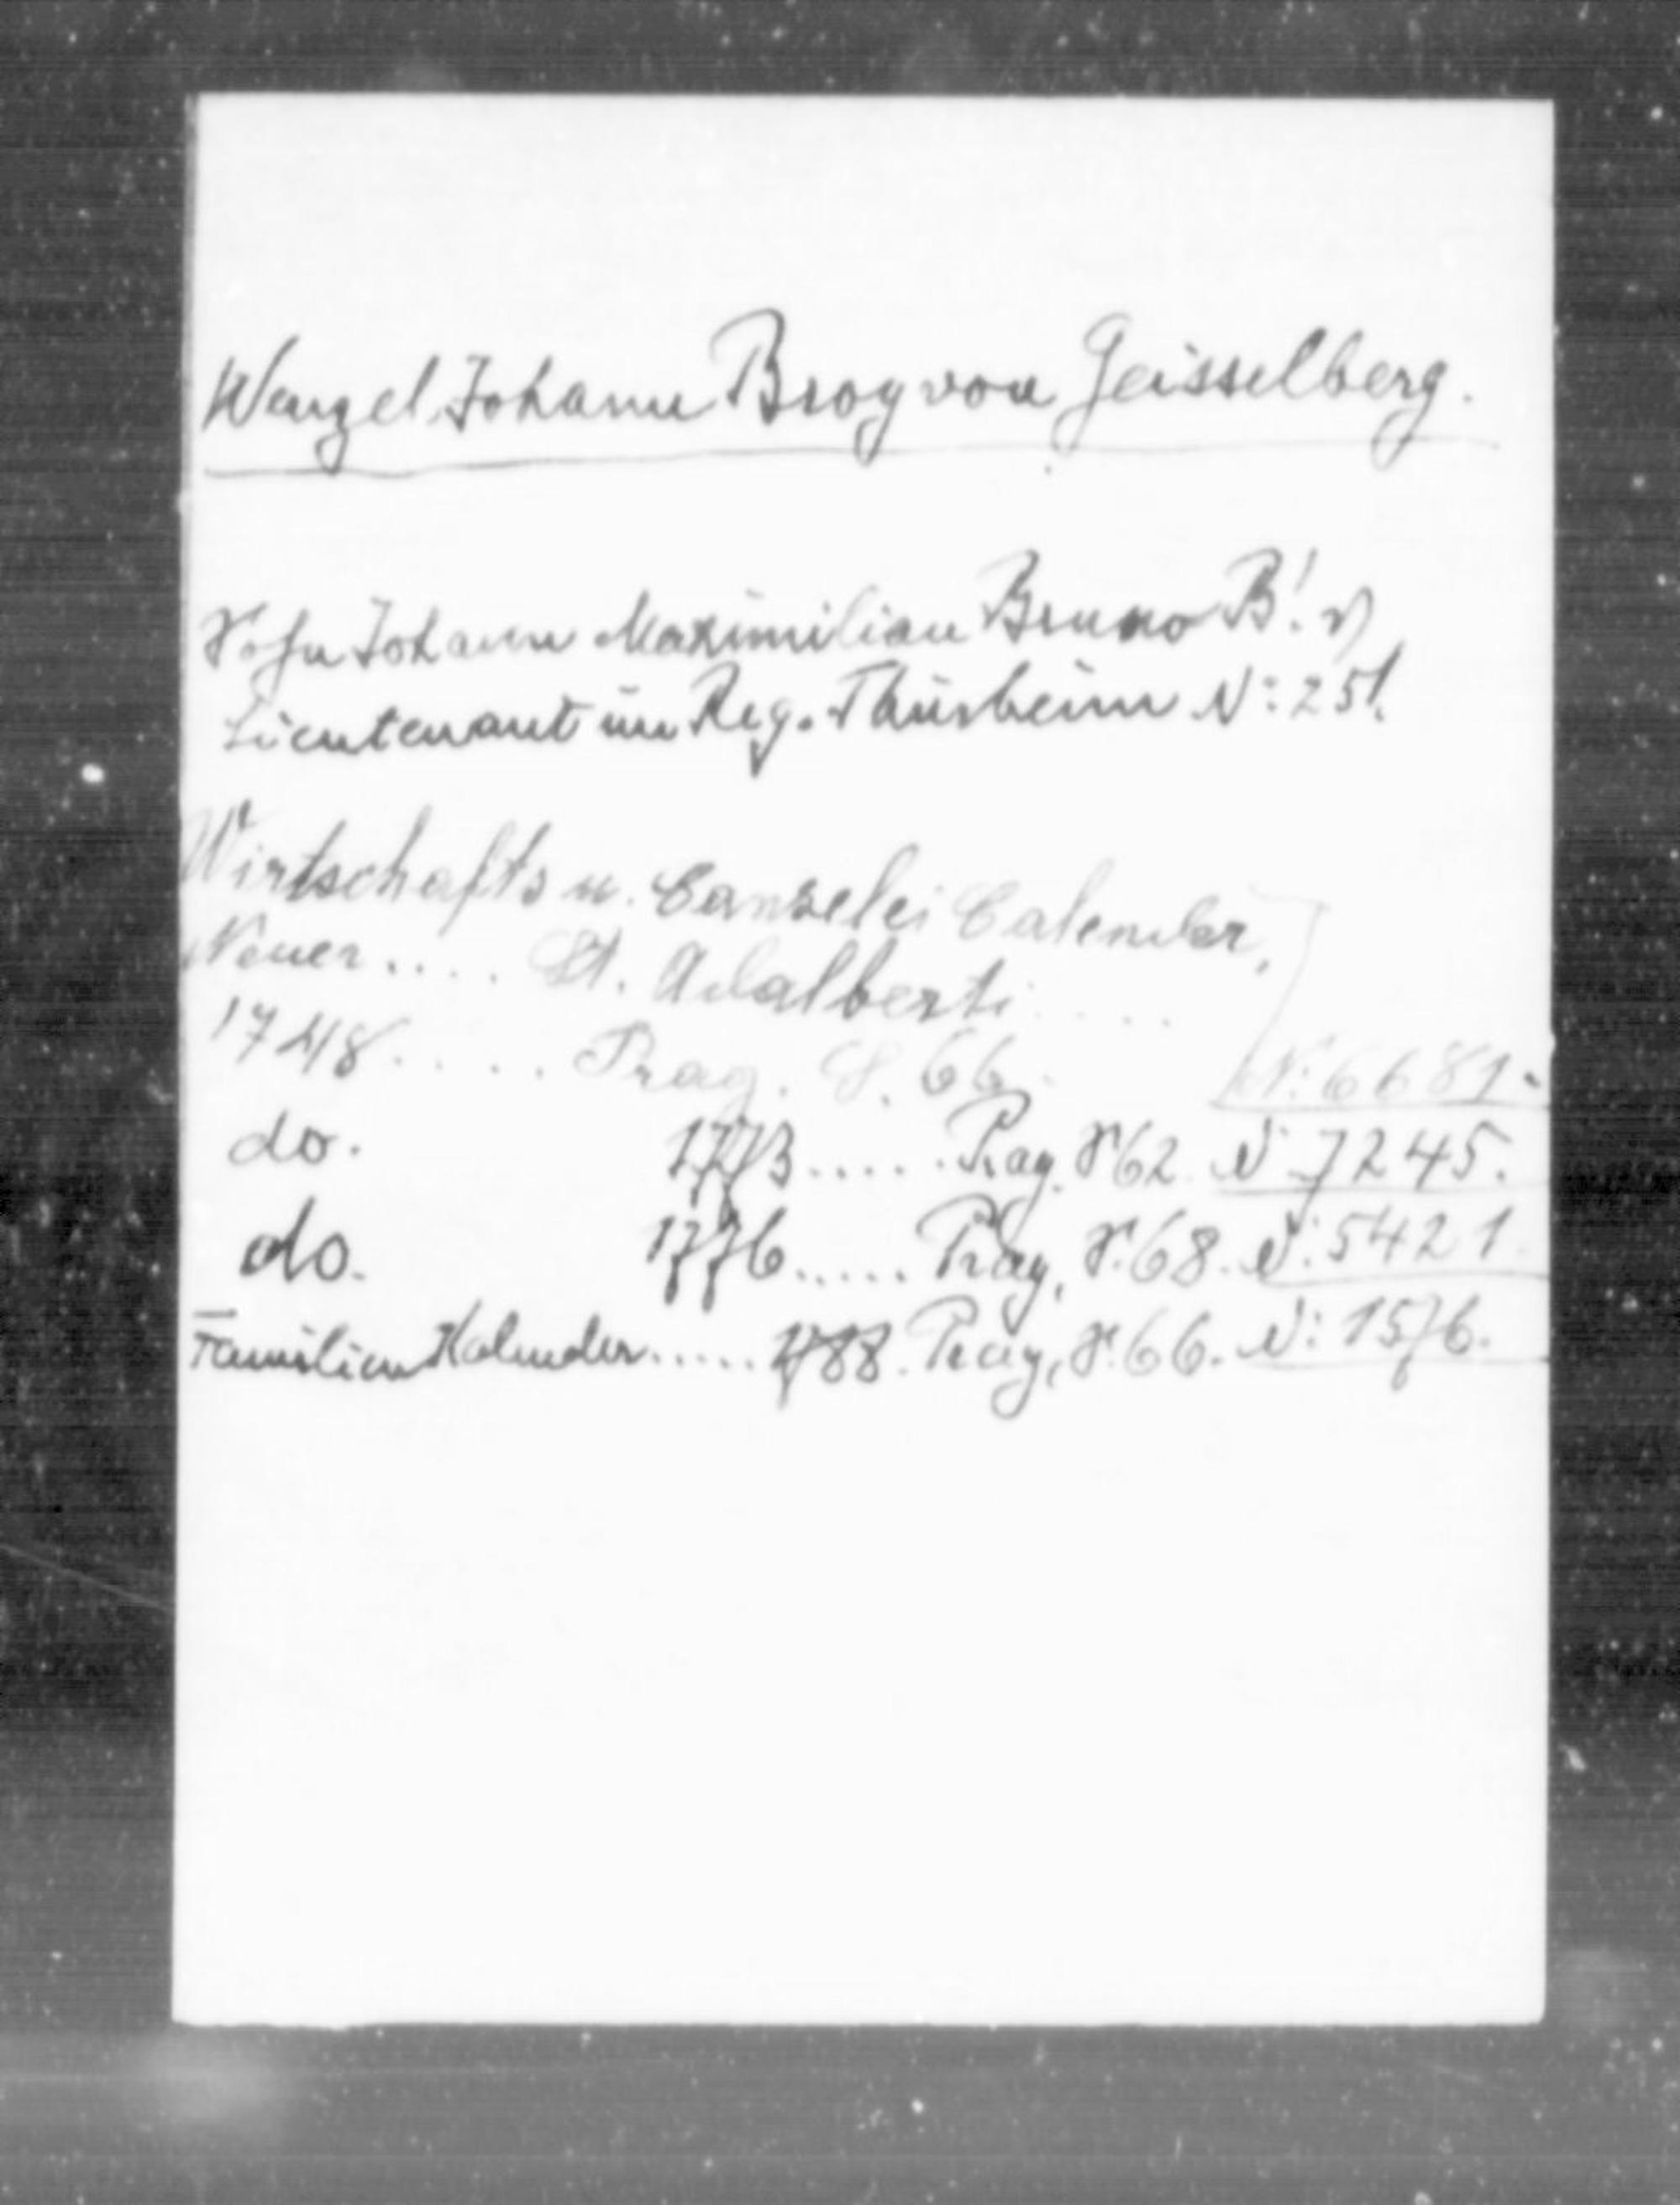 Wenzel Johann Brog von Geisselberg.
Sohn Johann Maximilian Bruno B! v
Lieutenant im Reg. Thürheim N: 25!.
Wirtschafts u. Canzelei Calender,
Neuer.... St. Adalberti ....
1748..... Prag. S. 66. N: 6681.
do. 1773..... Prag. S. 62. N 7245.
do. 1776..... Prag, S. 68. N: 5421.
Familien Kalender..... 1788. Prag, S. 66. N: 1576.